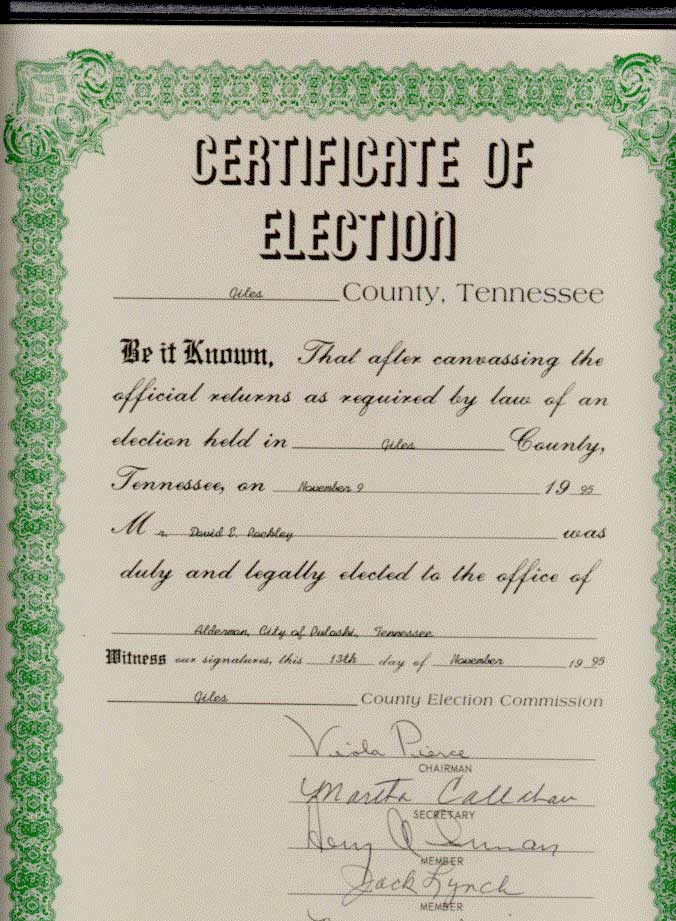 CERTIFICATE OF
ELECTION
Giles County, Tennessee
Be it Known, That after canvassing the
official returns as required by law of an
election held in Giles County,
Tennessee, on November 9 19 95
M r. David E. was
duly and legally elected to the office of
Alderman, City of Pulaski, Tennessee
Witness our signatures, this 13th day of November 19 95
Giles County Election Commission
Viola Pierce
CHAIRMAN
Martha Callahan
SECRETARY
MEMBER
Jack Lynch
MEMBER